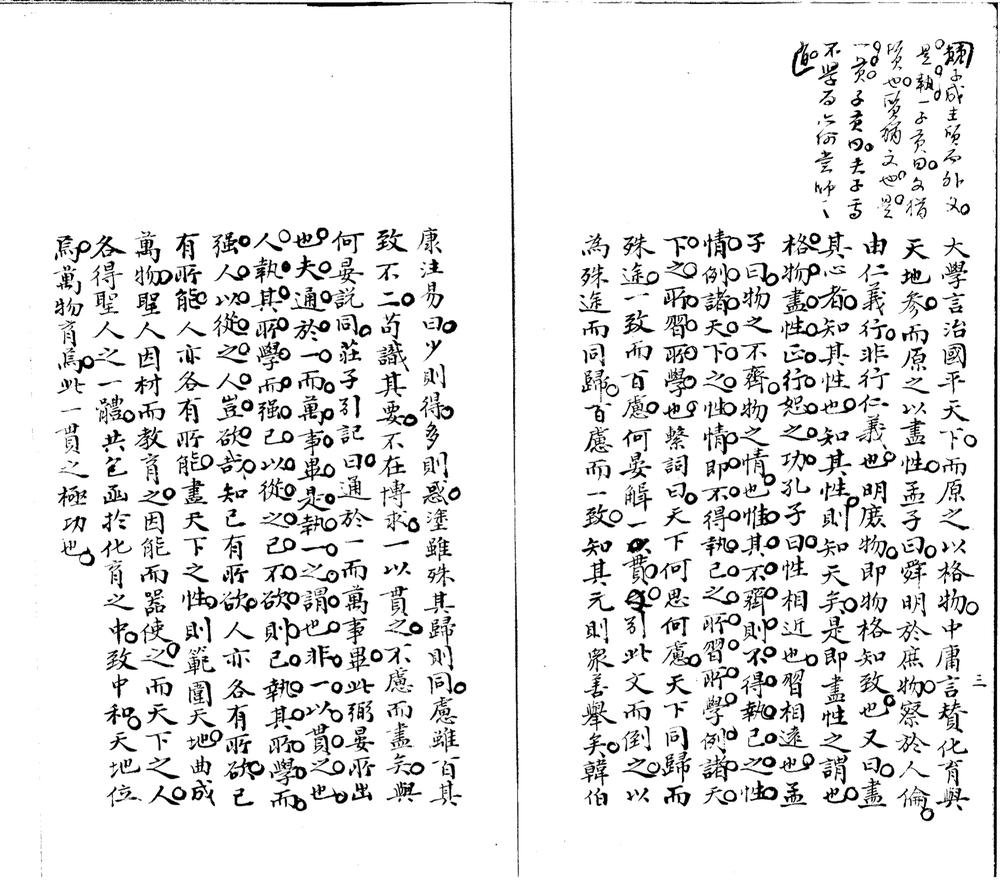 棘子成主質而外文
是執一子貢曰文猶
質也質猶文也是
一貫子貢曰夫子焉
不學而亦何常師之
大學言治國平天下而原之以格物中庸言贊化育與
天地參而原之以盡性孟子曰舜明於庶物察於人倫
由仁義行非行仁義也明庶物即物格知致也又曰盡
其心者知其性也知其性則知天矣是即盡性之謂也
格物盡性正行恕之功孔子曰性相近也習相遠也孟
子曰物之不齊物之情也惟其不齊則不得執己之性
情例諸天下之性情即不得執己之所習所學例諸天
下之所習所學也繫詞曰天下何思何慮天下同歸而
殊途一致而百慮何晏解一以貫之引此文而倒之以
為殊途而同歸百慮而一致知其元則衆善舉矣韓伯
三
康注易曰少則得多則惑塗雖殊其歸則同慮雖百其
致不二苟識其要不在博求一以貫之不慮而盡矣與
何晏說同莊子引記曰通於一而萬事畢此弼晏所出
也夫通於一而萬事畢是執一之謂也非一以貫之也
人執其所學而强己以從之己不欲則己執其所學而
强人以從之人豈欲哉知己有所欲人亦各有所欲己
有所能人亦各有所能盡天下之性則範圍天地曲成
萬物聖人因材而教育之因能而器使之而天下之人
各得聖人之一體共包函於化育之中致中和天地位
焉萬物育焉此一貫之極功也